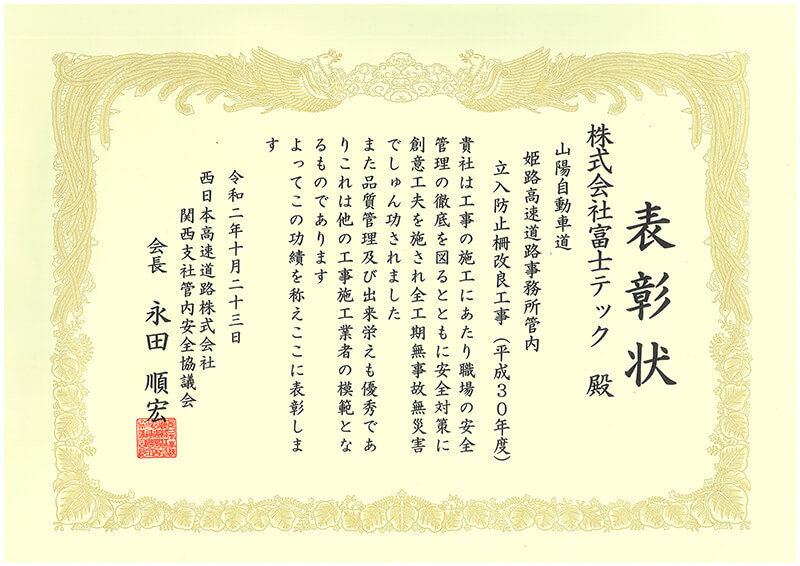 表彰状
株式会社富士テック 殿
山陽自動車道
姫路高速道路事務所管内
立入防止柵改良工事（平成30年度）
貴社は工事の施工にあたり職場の安全
管理の徹底を図るとともに安全対策に
創意工夫を施され全工期無事故無災害
でしゅん功されました
また品質管理及び出来栄えも優秀であ
りこれは他の工事施工業者の模範とな
るものであります
よってこの功績を称えここに表彰しま
す
令和二年十月二十三日
西日本高速道路株式会社
関西支社管内安全協議会
会長 永田 順宏